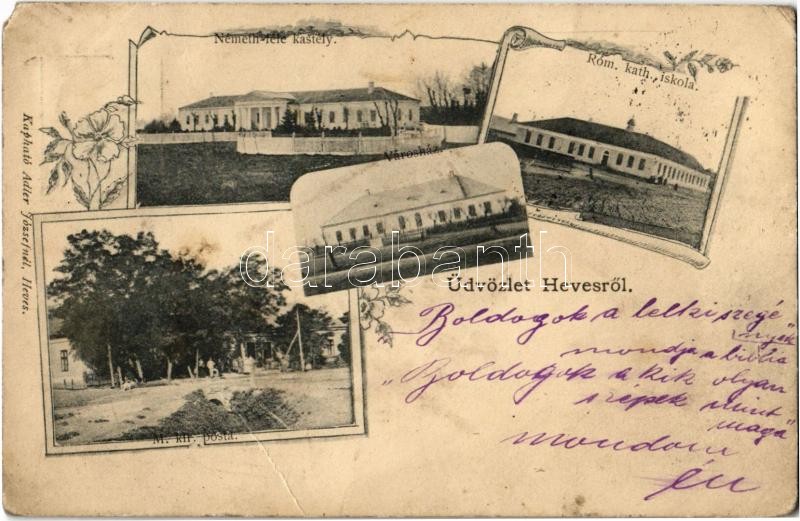 Németh-féle kastély.
Róm. kath. iskola.
Városház.
Kapható Adler Józsefnél, Heves.
darabanth
Üdvözlet Hevesről.
M. kir. posta.
Boldogok a lelki szegé
nyek"
mondja a biblia
"Boldogok a kik olyan
szépek mint
maga"
mondom
én